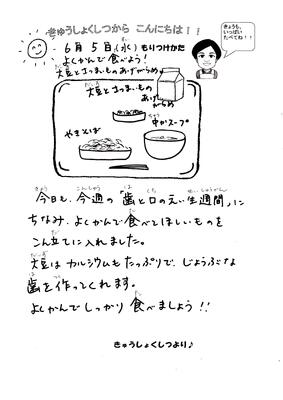 きゅうしょくしつから こんにちは！！
きょうも、
いっぱい
たべてね！！
6月 5日(水) もりつけかた
よくかんで食べよう！
大豆とさつまいものあげがらめ
大豆とさつまいもの
あげ
がらめ
中かスープ
やきそば
今日も、今週の「歯と口のえい生週間」に
ちなみ、よくかんで食べてほしいものを
こん立てに入れました。
大豆はカルシウムもたっぷりで、じょうぶな
歯を作ってくれます。
よくかんでしっかり食べましょう!!
きゅうしょくしつより♪